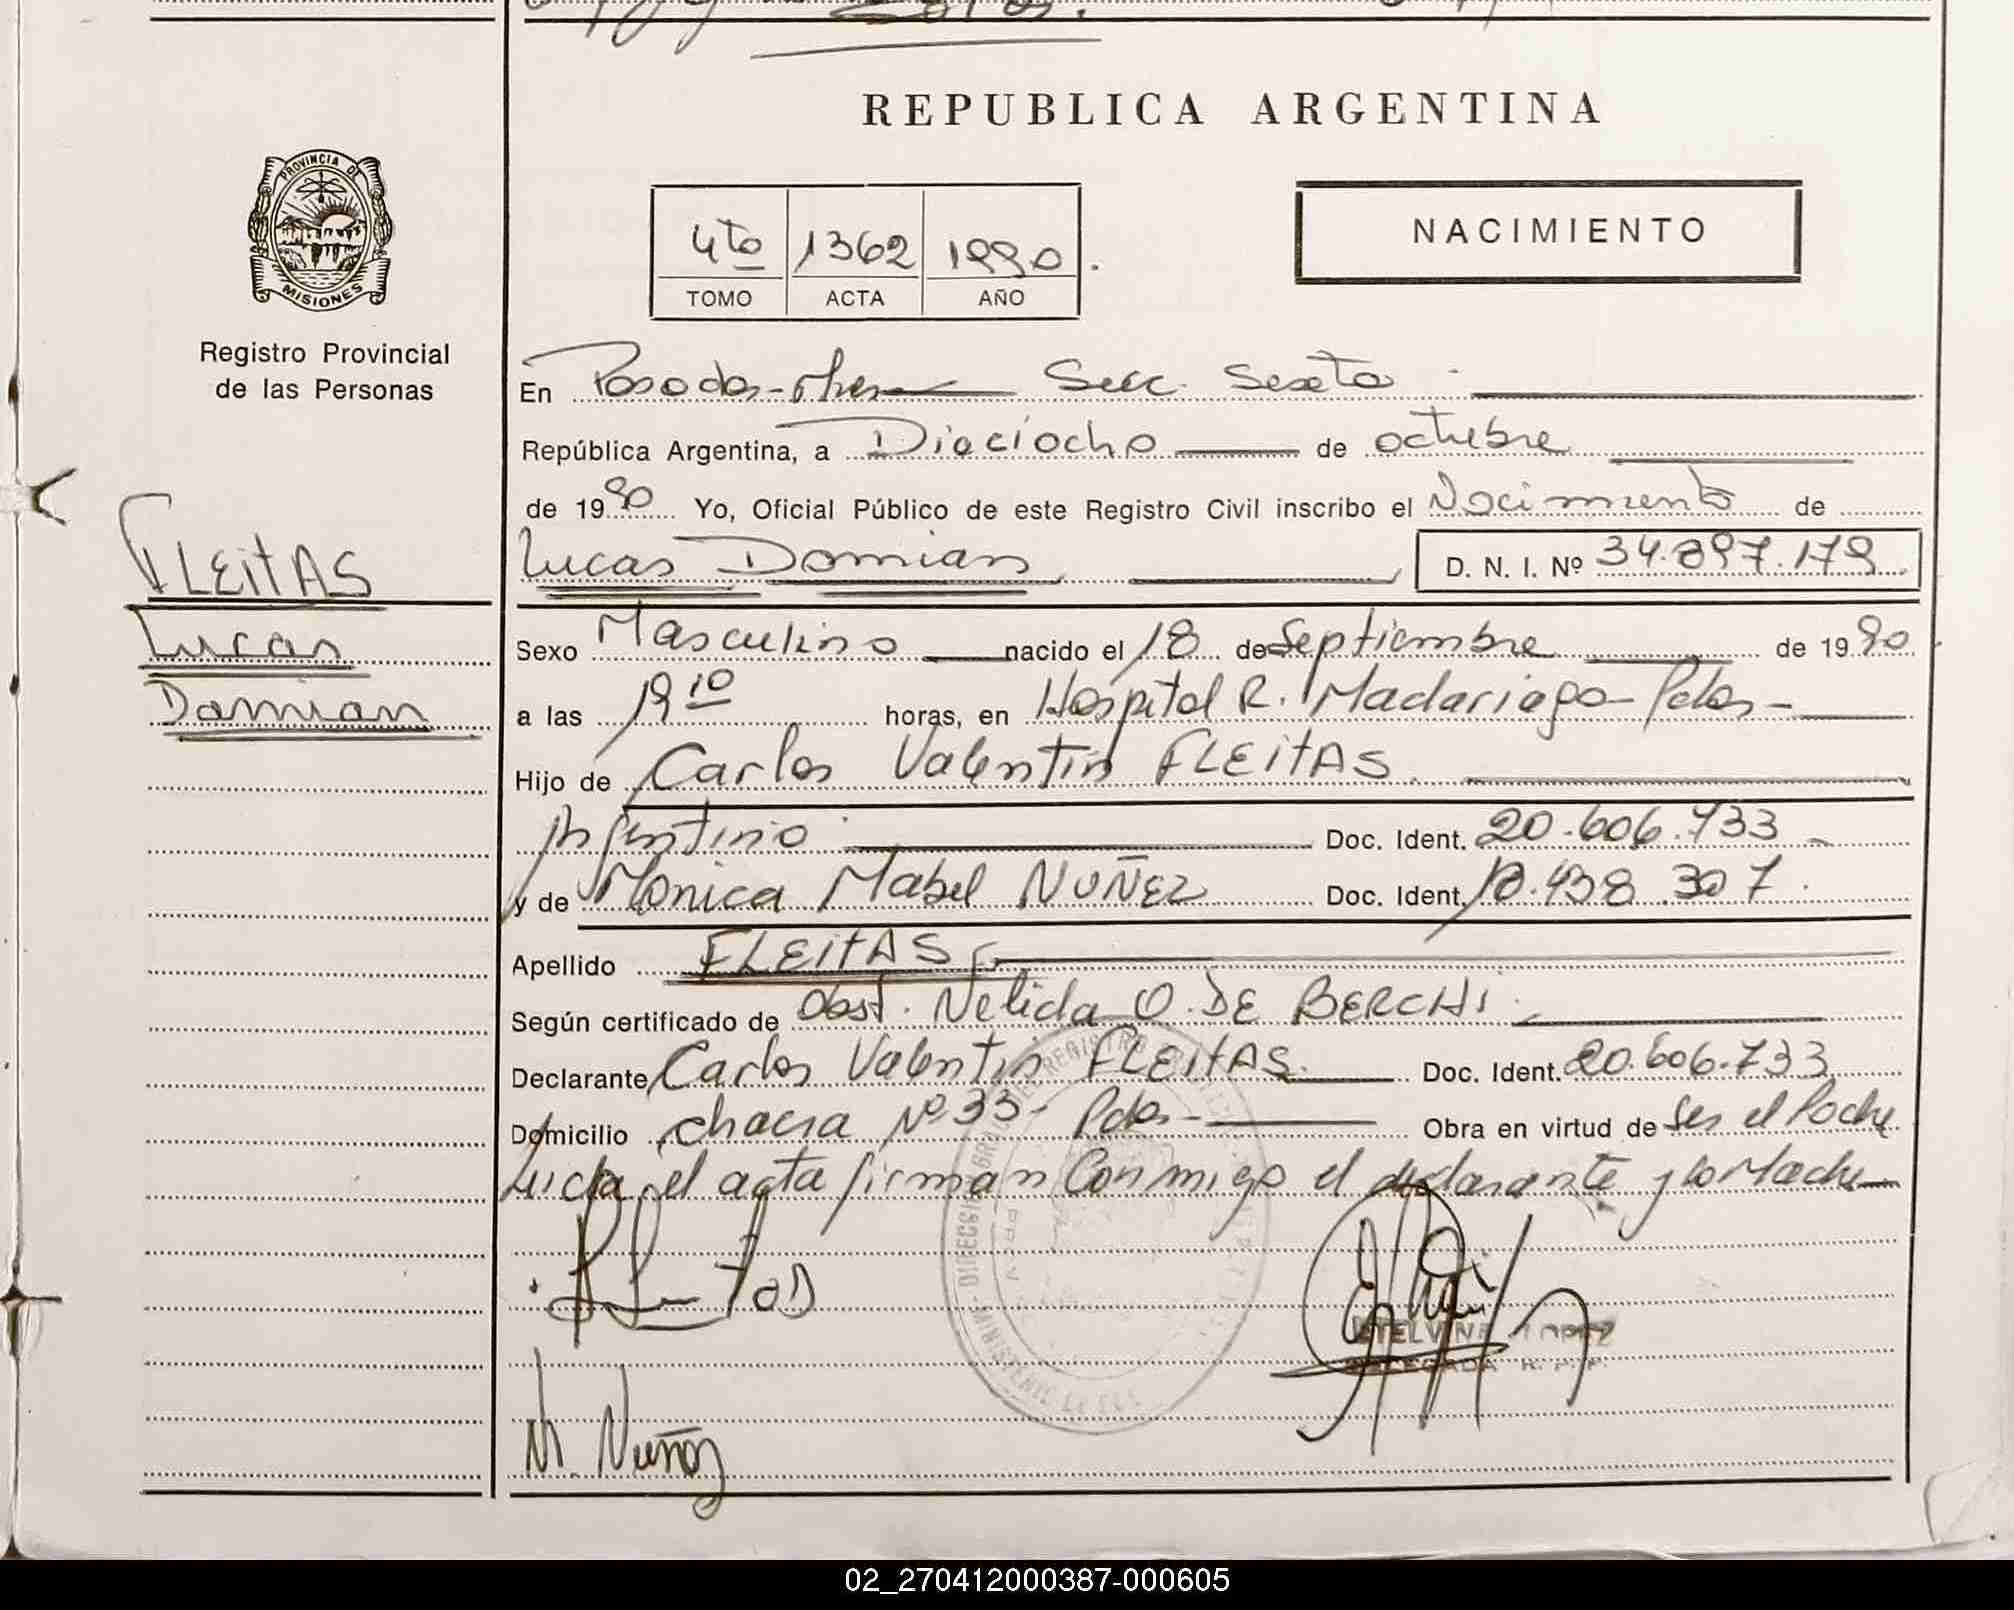 REPUBLICA ARGENTINA
PROVINCIA DE
MISIONES
Registro Provincial
de las Personas
4to 1362 1990.
TOMO ACTA AÑO
NACIMIENTO
En Posadas - Mnes Secc. Sexta
República Argentina, a Dieciocho de octubre
de 1990 Yo, Oficial Público de este Registro Civil inscribo el Nacimiento de
Lucas Damian D. N. I. Nº 34.897.179
FLEITAS
Lucas
Damian
Sexo Masculino nacido el 18 de Septiembre de 1990
a las 19 10 horas, en Hospital R. Madariaga - Pdas -
Hijo de Carlos Valentin FLEITAS
Argentino Doc. Ident. 20.606.733
y de Monica Mabel NUÑEZ Doc. Ident. 18.438.307
Apellido FLEITAS
Según certificado de Obst. Nelida O. DE BERCHI
Declarante Carlos Valentin FLEITAS Doc. Ident. 20.606.733
Domicilio chacra Nº 33 - Pdas - Obra en virtud de Ser el Padre
Leida el acta firman Conmigo el declarante y la Madre
ETELVINA LOPEZ
DELEGADA R. P. P.
M. Nuñez
02_270412000387-000605